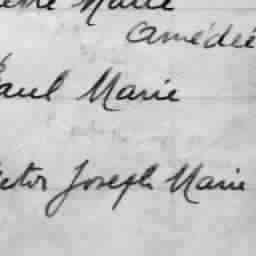 Marie
Amédée
Paul Marie
Victor Joseph Marie